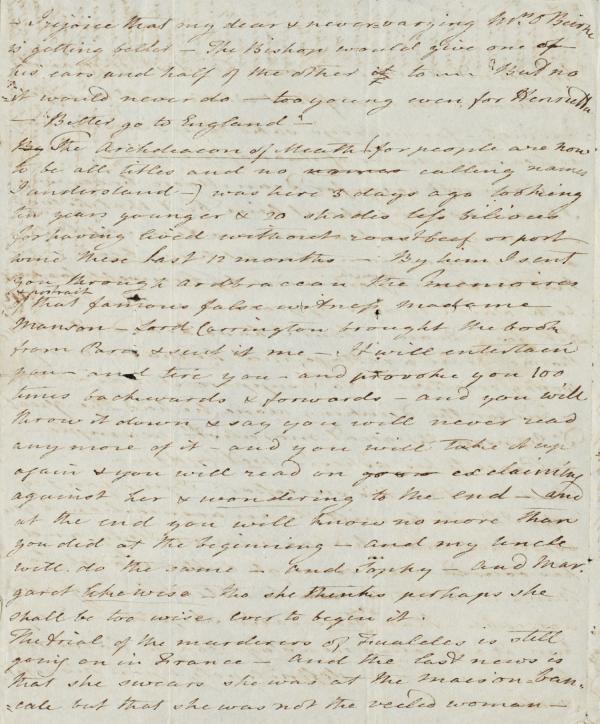 - I rejoice that my dear & never varying Mrs. O'Beirne
is getting better - The Bishop would give one of
his ears and half of the other if to us "But no
it would never do - too young even for Henrietta
- "Better go to England" -
The Archdeacon of Meath (for people are now
to be all titles and no names calling names
I understand -) was here 3 days ago looking
ten years younger & 20 shades less bilious
for having lived without roast beef or port
wine these last 12 months - By him I sent
you through Ardbraccan the Memoires
of that famous false witness Madame
Manson - Lord Carrington brought the book
from Paris & sent it me - It will entertain
you - and tire you - and provoke you 100
times backwards & forwards - and you will
throw it down & say you will never read
any more of it - and you will take it up
again & you will read on exclaiming
against her & wondering to the end - and
at the end you will know no more than
you did at the beginning - and my Uncle
will do the same - and Sophy - and Mar-
garet likewise - tho she thinks perhaps she
shall be too wise ever to begin it.
The trial of the murderers of Fualdes is still
going on in France - and the last news is
that she swears she was at the maison Ban-
-cale but that she was not the veiled woman -